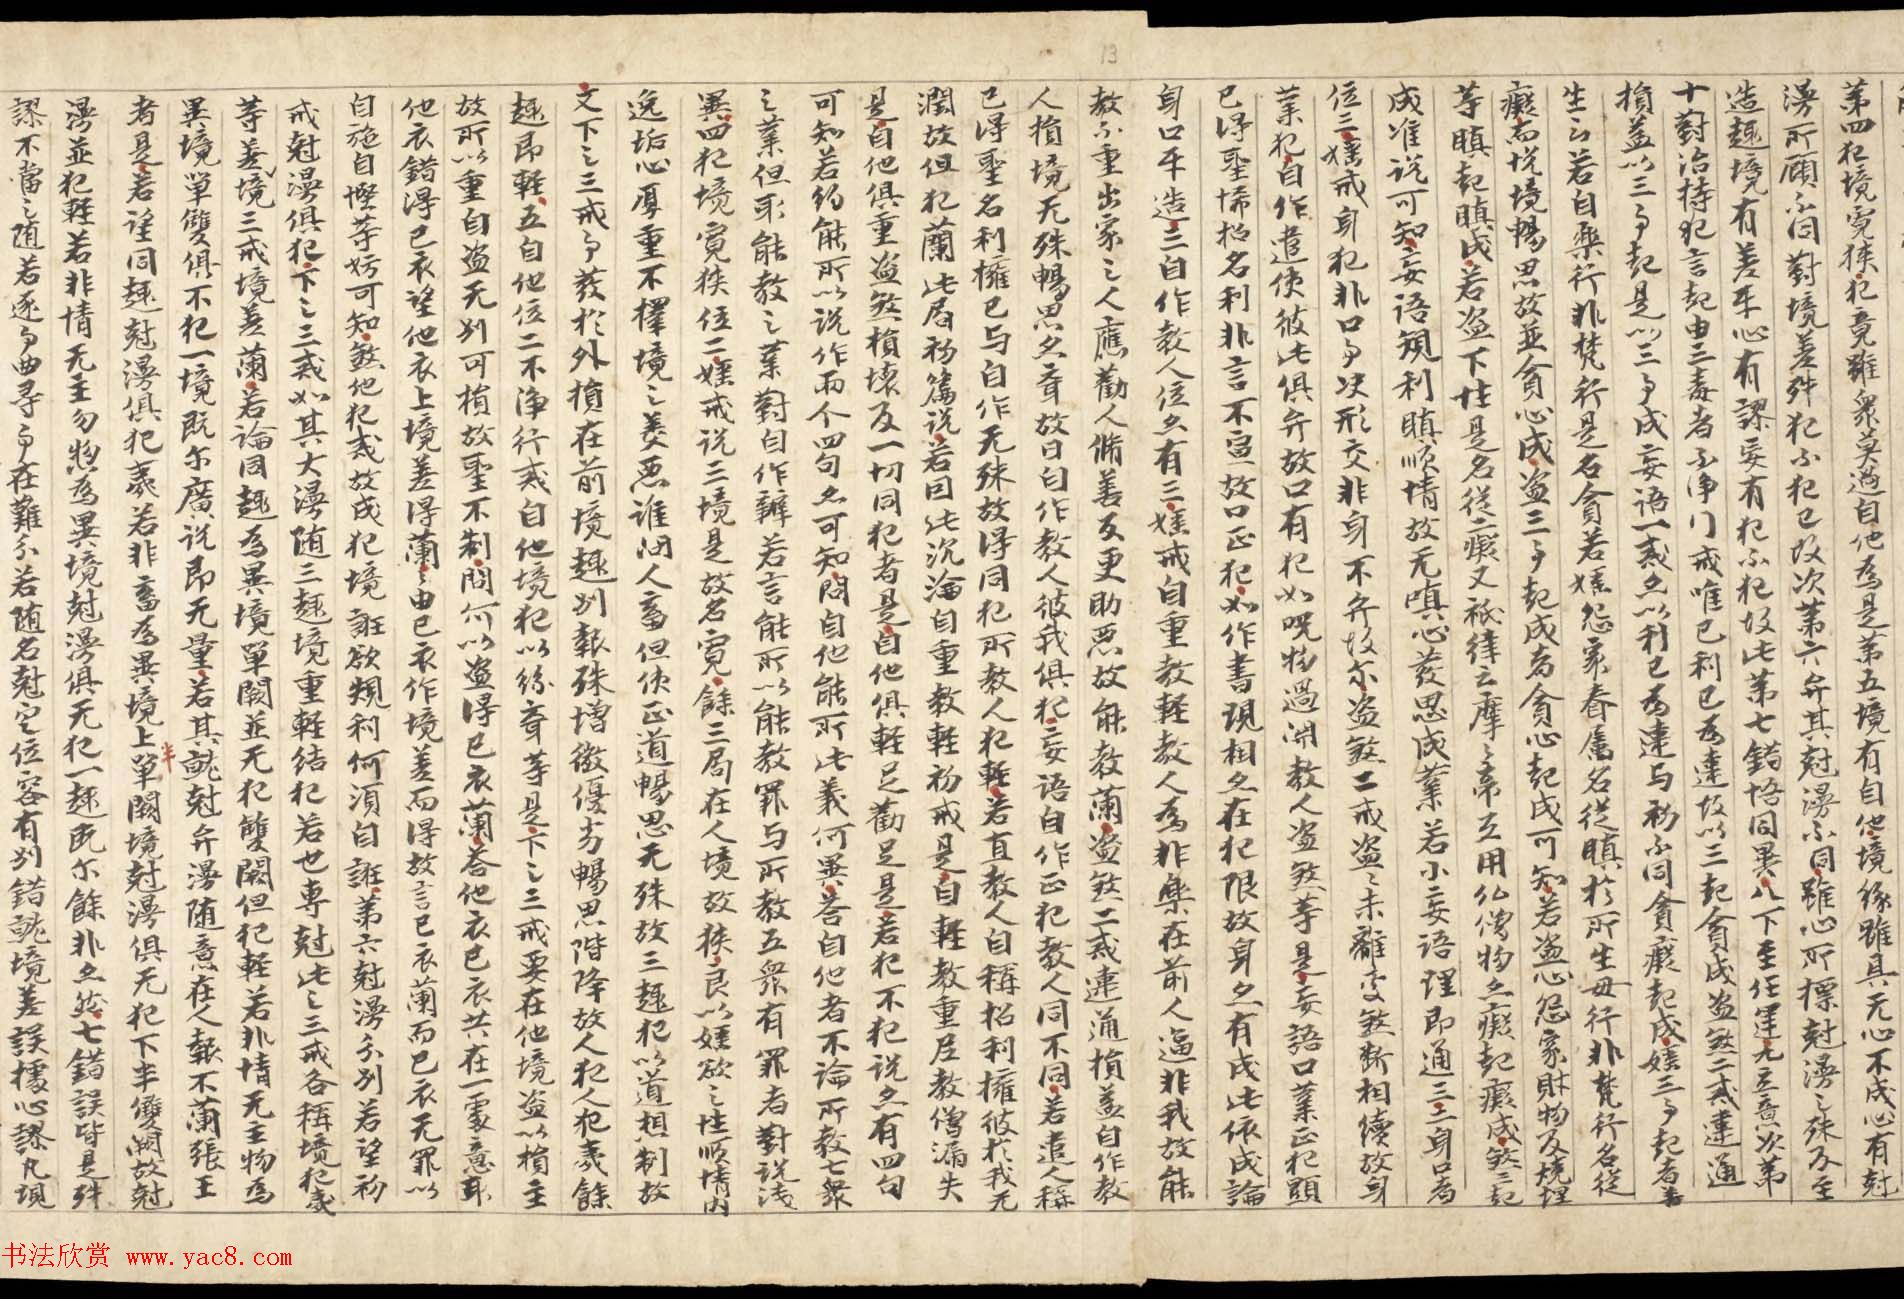 第四犯境寬狹犯竟雖眾莫過自他為是第五境有自他境緣雖具无心不成心有尅
漫所願不同對境差殊犯不犯已故次第六弁其尅漫不同雖心所標尅漫之殊及至
造趣境有差互心有謬妄有犯不犯故此第七錯悟同異八下至任運九立意次第
十對治持犯言起由三毒者不淨行戒唯已利已為違故以三起貪成盜煞二戒違通
損益以三事起是以三事成妄語一戒亦以利已為違与初不同貪癡起成婬三事起者
生云若自樂行非梵行是名貪若婬怨家眷屬名從瞋於所生母行非梵行名從
癡而說境暢思故並貪心成盜三事起成者貪心起成可知若盜心怨家財物及燒埋
等瞋起瞋成若盜下性是名從癡又祇律云摩摩帝互用仏僧物亦癡起癡成煞三起
成准說可知妄語規利瞋順情故无嗔心發思成業若小妄語理即通三二身口者
位三婬戒身犯非口事決形交非身不弁故尔盜煞二戒盜之未離處煞斷相續故身
業犯自作遣使彼此俱弁故口有犯如呪物過渊教人盜煞等是妄語口業正犯顯
已得聖悕招名利非言不宣故口正犯如作書現相亦在犯限故身亦有成此依成論
身口互造三自作教人位亦有三婬戒自重教輕教人為非樂在前人逼非我故能
教不重出家之人應勸人脩善反更助惡故能教蘭盜煞二戒違通損益自作教
人損境无殊暢思亦齊故曰自作教人彼我俱犯妄語自作正犯教人同不同若遣人稱
已得聖名利擁已与自作无殊故得同犯所教人犯輕若直教人自稱招利擁彼於我无
潤故但犯蘭此局初篇說若因此沉淪自重教輕初戒是自輕教重屈教僧漏失
是自他俱重盜煞損壞及一切同犯者是自他俱輕足勸足是若犯不犯說亦有四句
可知若約能所以說作兩个四句亦可知問自他能所此義何異答自他者不論所教七眾
之業但取能教之業對自作辨若言能所以能教罪与所教五眾有罪者對說淺
異四犯境寬狹位二婬戒說三境是故名寬餘三局在人境故狹良以婬欲之性順情內
逸垢心厚重不擇境之美惡誰問人畜但使正道暢思无殊故三趣犯以道相制故
文下之三戒事發於外損在前境趣別報殊增微優劣暢思階降故人犯人犯義餘
趣即輕五自他位二不淨行戒自他境犯以緣齊等是下之三戒要在他境盜以損主
故所以重自盜无別可損故聖不制問何以盜得已衣蘭答他衣已衣共在一處意取
他衣錯得已衣望他衣上境差得蘭之由已衣作境差而得故言已衣蘭而已衣无罪以
自施自慳等妨可知煞他犯戒故成犯境誑欲規利何須自誑第六尅漫分別若望初
戒尅漫俱犯下之三戒如其大漫随三趣境重輕結犯若也專尅此之三戒各稱境犯義
等差境三戒境差蘭若論同趣為異境單闕並无犯雙闕但犯輕若非情无主物為
異境單雙俱不犯一境既尔廣說即无量若其就尅弁漫随意在人報不蘭張王
者是若望同趣尅漫俱犯義若非畜為異境上半單闕境尅漫俱无犯下半雙闕故尅
漫並犯輕若非情无主勿物為異境尅漫俱无犯一趣既尔餘非亦然七錯誤皆是殊
謬不當之随若逐事曲尋事在難分若随名尅定位容有別錯就境差誤據心謬凡現
书法欣赏 www.yac8.com
13